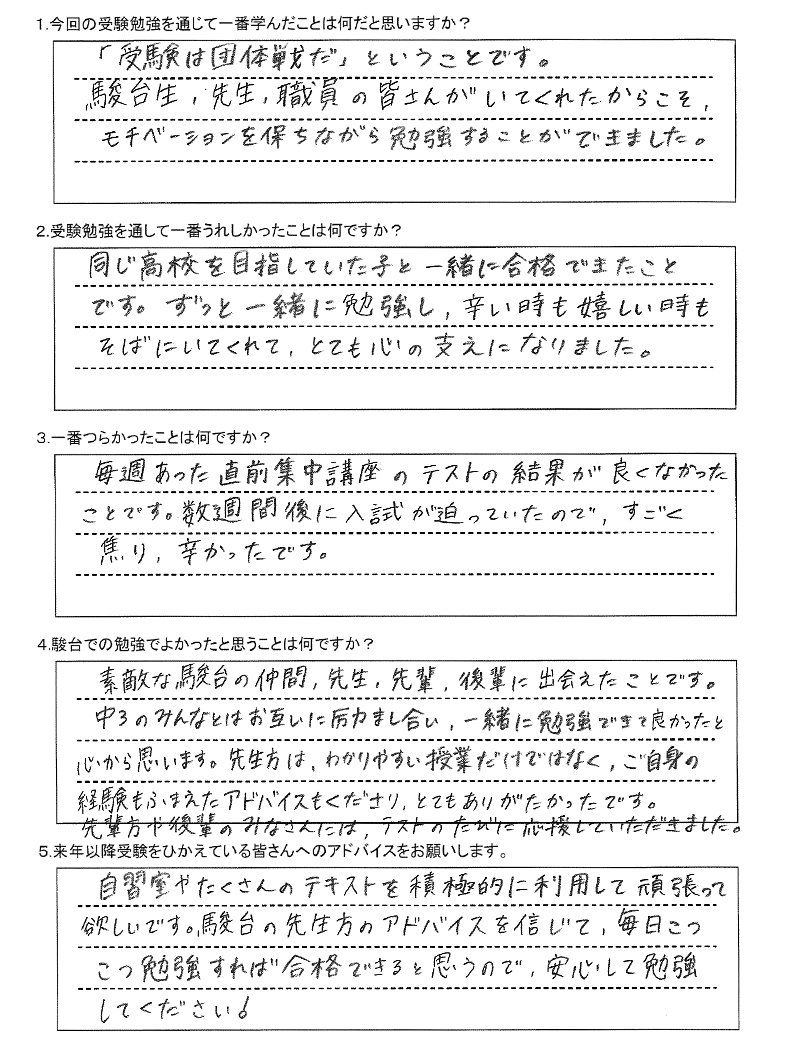 1.今回の受験勉強を通じて一番学んだことは何だと思いますか？
「受験は団体戦だ」ということです。
駿台生，先生，職員の皆さんがいてくれたからこそ，
モチベーションを保ちながら勉強することができました。
2.受験勉強を通して一番うれしかったことは何ですか？
同じ高校を目指していた子と一緒に合格できたこと
です。ずっと一緒に勉強し，辛い時も嬉しい時も
そばにいてくれて，とても心の支えになりました。
3.一番つらかったことは何ですか？
毎週あった直前集中講座のテストの結果が良くなかった
ことです。数週間後に入試が迫っていたので，すごく
焦り，辛かったです。
4.駿台での勉強でよかったと思うことは何ですか？
素敵な駿台の仲間，先生，先輩，後輩に出会えたことです。
中3のみんなとはお互いに励まし合い，一緒に勉強できて良かったと
心から思います。先生方は，わかりやすい授業だけではなく，ご自身の
経験もふまえたアドバイスもくださり，とてもありがたかったです。
先輩方や後輩のみなさんには，テストのたびに応援していただきました。
5.来年以降受験をひかえている皆さんへのアドバイスをお願いします。
自習室やたくさんのテキストを積極的に利用して頑張って
欲しいです。駿台の先生方のアドバイスを信じて，毎日こつ
こつ勉強すれば合格できると思うので，安心して勉強
してください！